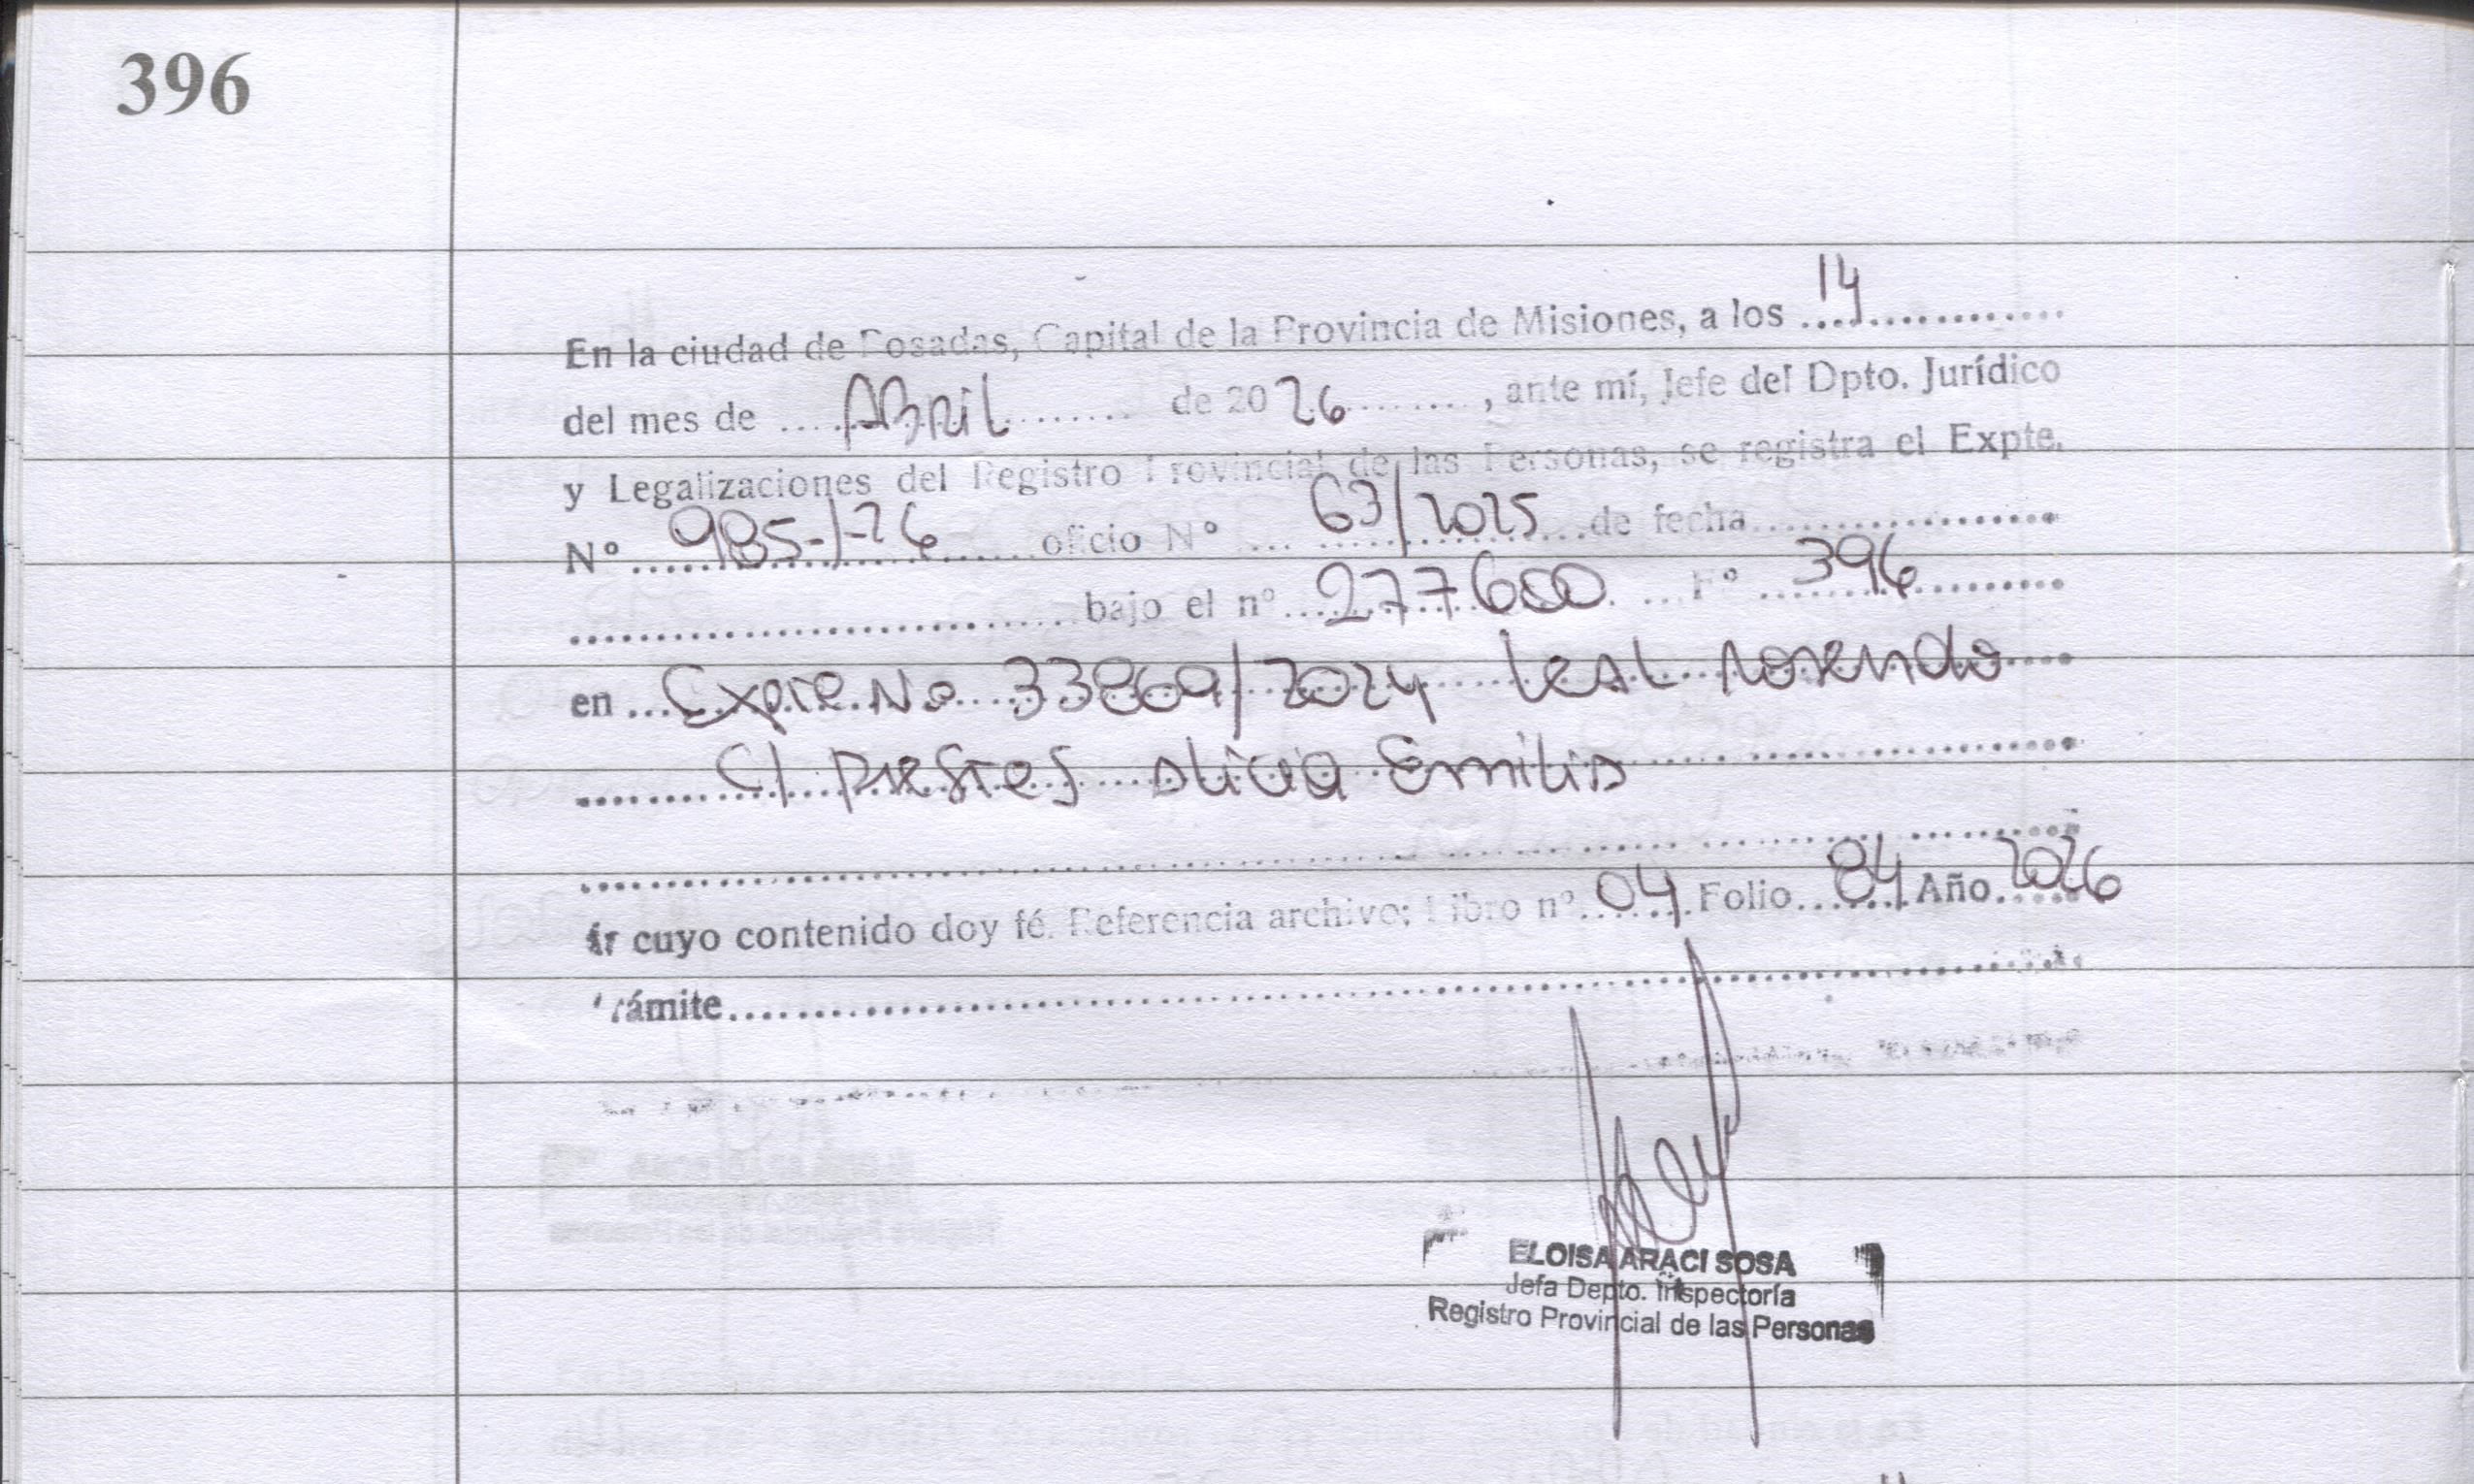 396
En la ciudad de Posadas, Capital de la Provincia de Misiones, a los ....14..............
del mes de ....ABRIL........... de 2026........, ante mí, Jefe del Dpto. Jurídico
y Legalizaciones del Registro Provincial de las Personas, se registra el Expte.
Nº ....985-/-26........ oficio Nº ... 63/2025 ....de fecha....................
.................................. bajo el nº ...277600. ... Fº .....396...........
en ...Expte. No 33869/2024 Leal Rosendo....
........C/ Prestes Oliva Emilia ....................
..................................................
cuyo contenido doy fé. Referencia archivo; Libro nº...04. Folio...84. Año..2026
Trámite..................................................
ELOISA ARACI SOSA
Jefa Depto. Inspectoría
Registro Provincial de las Personas